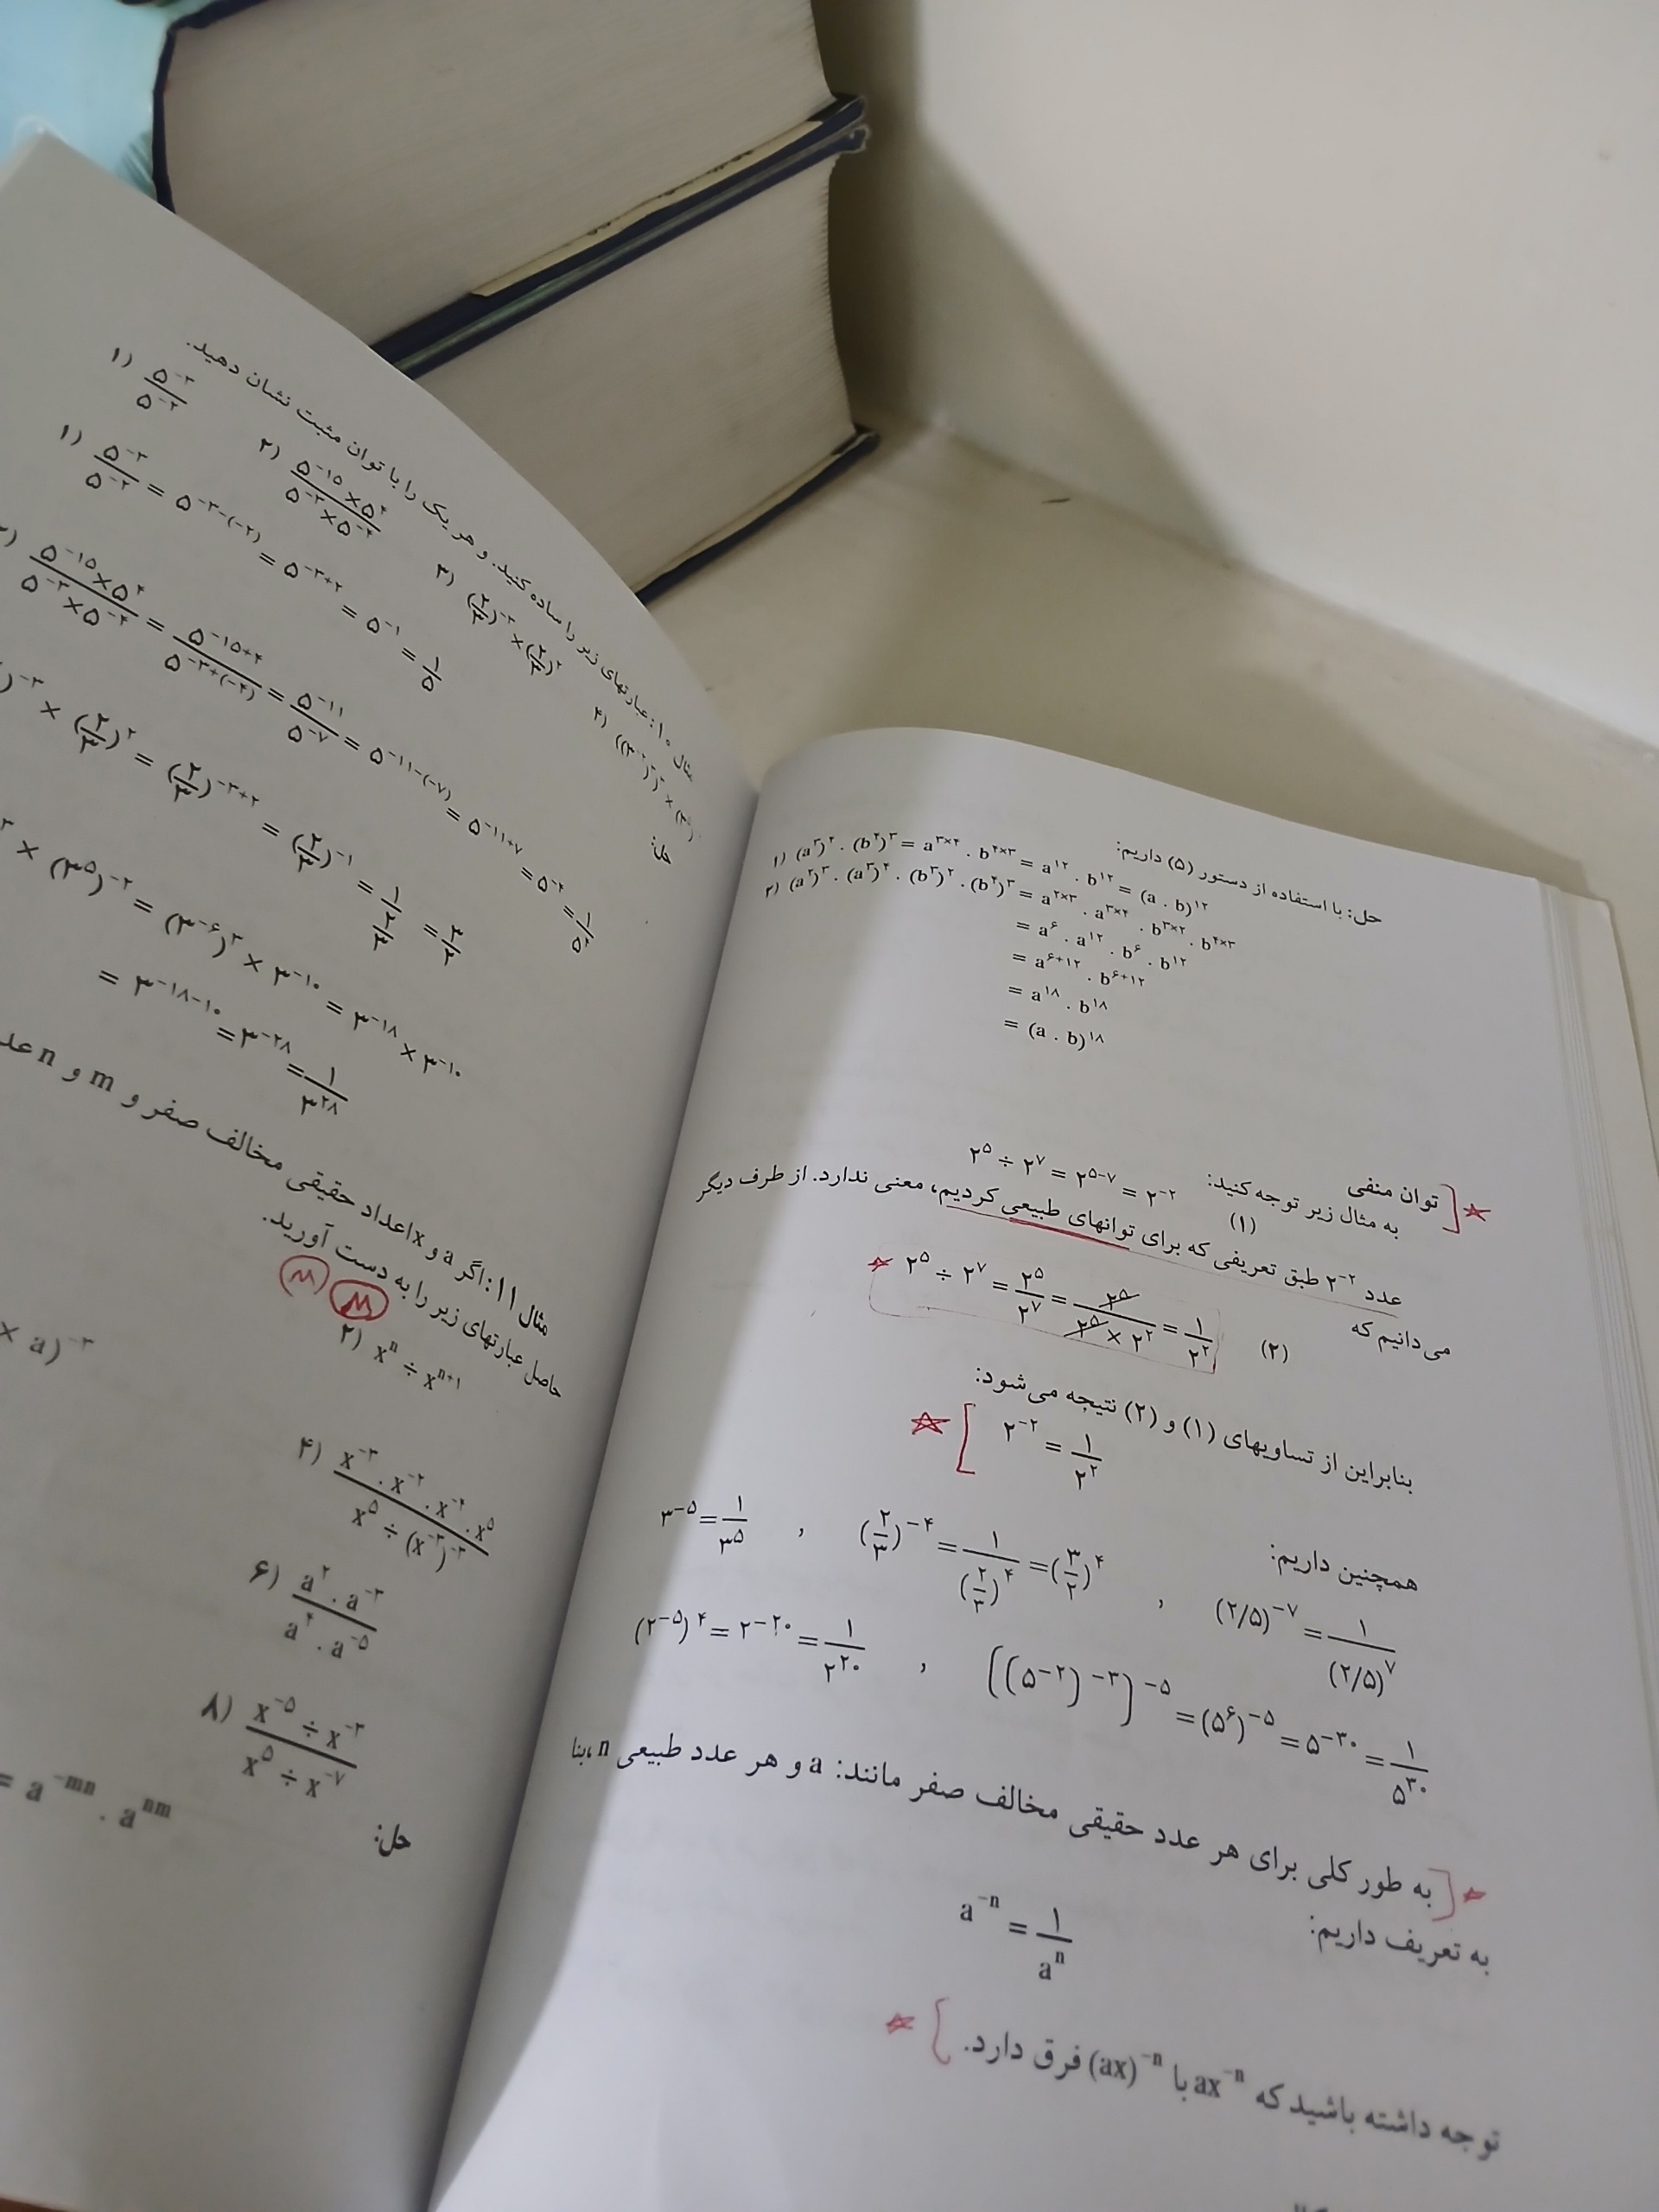 حل: با استفاده از دستور (۵) داریم:
۱) (a^۳)^۴ . (b^۴)^۳ = a^{۳×۴} . b^{۴×۳} = a^{۱۲} . b^{۱۲} = (a . b)^{۱۲}
۲) (a^۲)^۳ . (a^۳)^۴ . (b^۳)^۲ . (b^۴)^۳ = a^{۲×۳} . a^{۳×۴} . b^{۳×۲} . b^{۴×۳}
= a^۶ . a^{۱۲} . b^۶ . b^{۱۲}
= a^{۶+۱۲} . b^{۶+۱۲}
= a^{۱۸} . b^{۱۸}
= (a . b)^{۱۸}
توان منفی
به مثال زیر توجه کنید: ۲^۵ ÷ ۲^۷ = ۲^{۵-۷} = ۲^{-۲} (۱)
عدد ۲^{-۲} طبق تعریفی که برای توانهای طبیعی کردیم، معنی ندارد. از طرف دیگر
می‌دانیم که (۲) ۲^۵ ÷ ۲^۷ = ۲^۵/۲^۷ = ۲^۵/(۲^۵ × ۲^۲) = ۱/۲^۲
بنابراین از تساویهای (۱) و (۲) نتیجه می‌شود:
۲^{-۲} = ۱/۲^۲
همچنین داریم:
۳^{-۵} = ۱/۳^۵ , (۲/۳)^{-۴} = ۱/(۲/۳)^۴ = (۳/۲)^۴ , (۲/۵)^{-۷} = ۱/(۲/۵)^۷
(۲^{-۵})^۴ = ۲^{-۲۰} = ۱/۲^{۲۰} , ((۵^{-۲})^{-۳})^{-۵} = (۵^۶)^{-۵} = ۵^{-۳۰} = ۱/۵^{۳۰}
به طور کلی برای هر عدد حقیقی مخالف صفر مانند: a و هر عدد طبیعی n، بنا
به تعریف داریم:
a^{-n} = ۱/a^n
توجه داشته باشید که ax^{-n} با (ax)^{-n} فرق دارد.
مثال ۱۰: عبارتهای زیر را ساده کنید. و هر یک را با توان مثبت نشان دهید.
۱) ۵^{-۳}/۵^{-۲} ۲) (۵^{-۱۵} × ۵^۴)/(۵^{-۳} × ۵^{-۴}) ۳) (۲/۳)^{-۳} × (۲/۳)^۲ ۴)
حل:
۱) ۵^{-۳}/۵^{-۲} = ۵^{-۳-(-۲)} = ۵^{-۳+۲} = ۵^{-۱} = ۱/۵
(۵^{-۱۵} × ۵^۴)/(۵^{-۳} × ۵^{-۴}) = ۵^{-۱۵+۴}/۵^{-۳+(-۴)} = ۵^{-۱۱}/۵^{-۷} = ۵^{-۱۱-(-۷)} = ۵^{-۱۱+۷} = ۵^{-۴} = ۱/۵^۴
)^{-۳} × (۲/۳)^۲ = (۲/۳)^{-۳+۲} = (۲/۳)^{-۱} = ۱/(۲/۳) = ۳/۲
× (۳^۵)^{-۲} = (۳^{-۶})^۳ × ۳^{-۱۰} = ۳^{-۱۸} × ۳^{-۱۰}
= ۳^{-۱۸-۱۰} = ۳^{-۲۸} = ۱/۳^{۲۸}
مثال ۱۱: اگر a و x اعداد حقیقی مخالف صفر و m و n عد
حاصل عبارتهای زیر را به دست آورید.
۲) x^n ÷ x^{n+۱}
× a)^{-۳}
۴) (x^{-۳} . x^{-۲} . x^{-۴} . x^۵)/(x^۵ ÷ (x^{-۳})^{-۳})
۶) (a^۲ . a^{-۳})/(a^۴ . a^{-۵})
۸) (x^{-۵} ÷ x^{-۳})/(x^۵ ÷ x^{-۷})
حل:
= a^{-mn} . a^{nm}